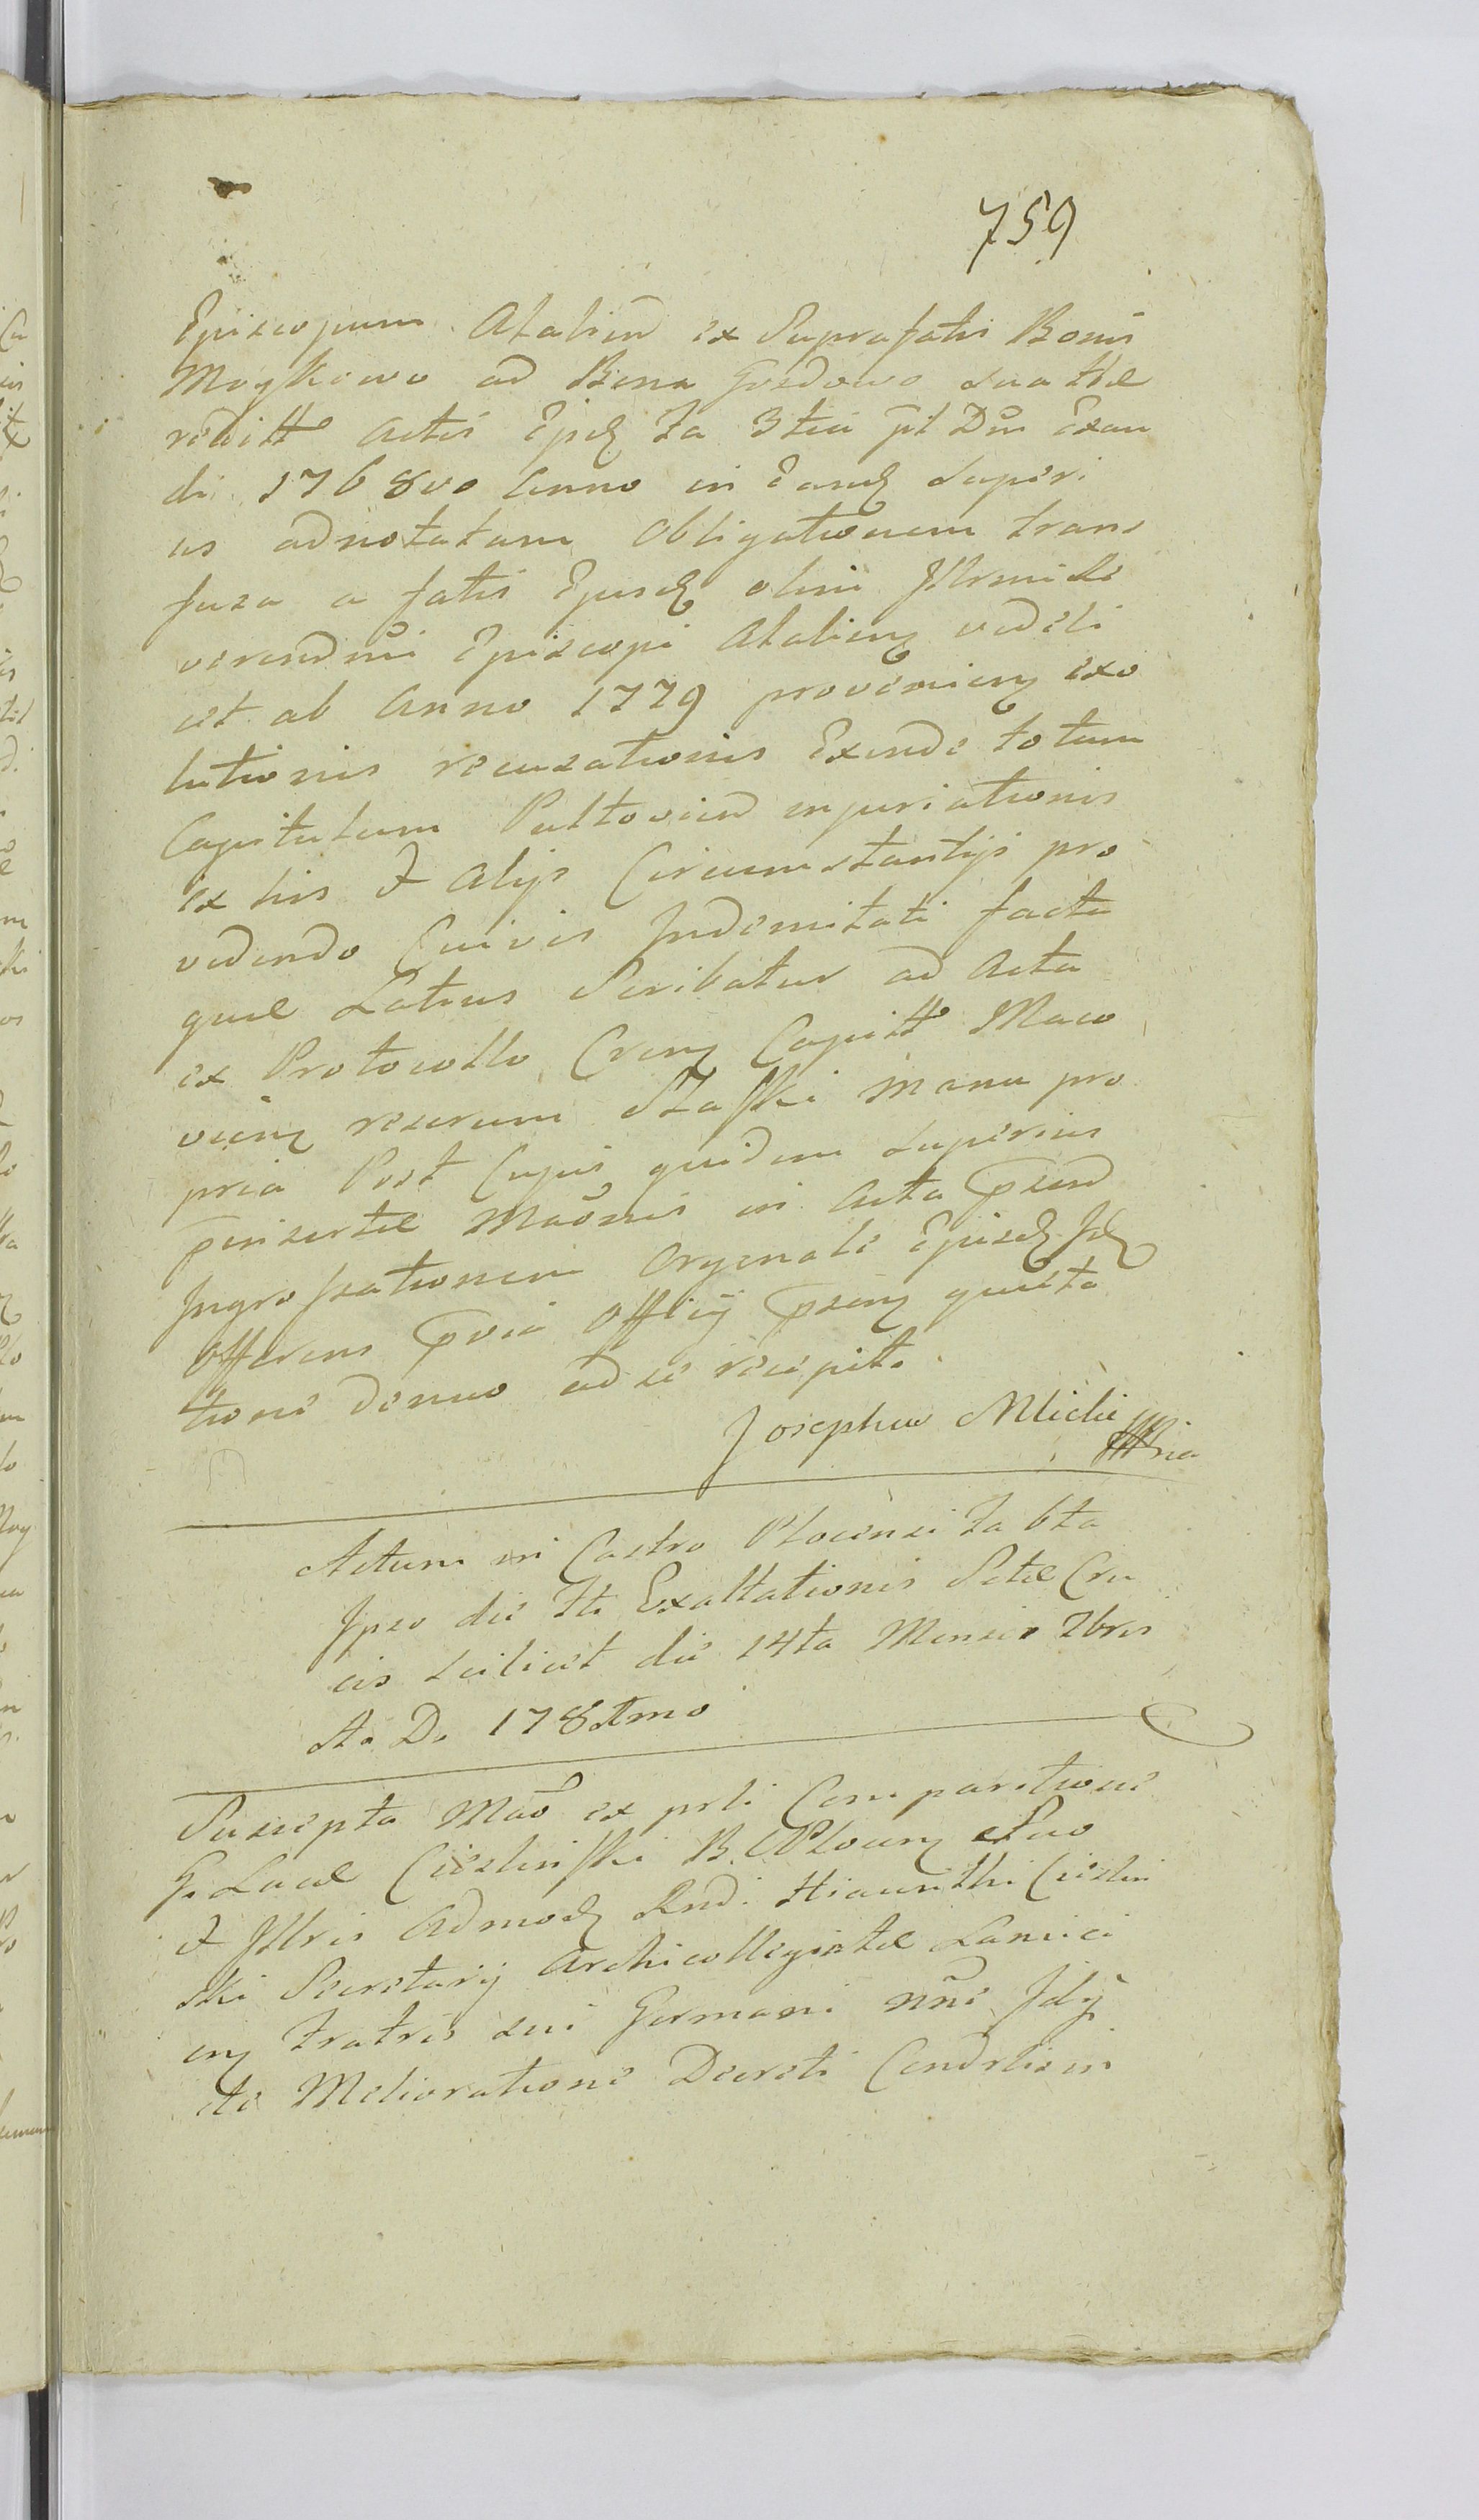 759
Episcopum Atalień ex Suprafatis Bonis
Moykowo ad Bona Gozdowo sua Hæ
reditt Actis Ejusd fa 3tia pt Dm Exau
di 1768vo Anno in Eand Superi
us adnotatam Obligationem trans
fusa a fatis Ejusd olim Jllrmi Re
verendmi Episcopi Atalien videli
cet ab Anno 1779 provenien exo
lutionis recusationis Exinde totum
Capitulum Pultovień injuriationis
ex his & Alijs Circumstantijs pro
videndo Cuivis Indemnitati facta
quæ Latius Scribatur ad Acta
ex Protocollo Cren Capitt Maco
vien rescrum manu pro
pria Post Cujus quidem Superius
pinsertæ Maōnis in Acta pseń
Ingrossationem Orginale Ejusd Jd
Offerens pvia Officij psen quieta
tione denuo ad se recepit.
Josephus Mlicki
mpria
Actum in Castro Plocensi fa 6ta
Ipso die fti Exaltationis Sctæ Cru
cis scilicet die 14ta Mensis 7bris
A. D. 178tmo
Suscepta Maō ex psli Comparitione
G. Lucæ Cieslinski B. C. Plocen Suo
& Jllris Admod Rndi Hiacinthi Cieslin
ski Secretarij Archicollegiatæ Lancici
en fratris sui Germani nñe Jdij
de Melioratione Decreti Condrtis in